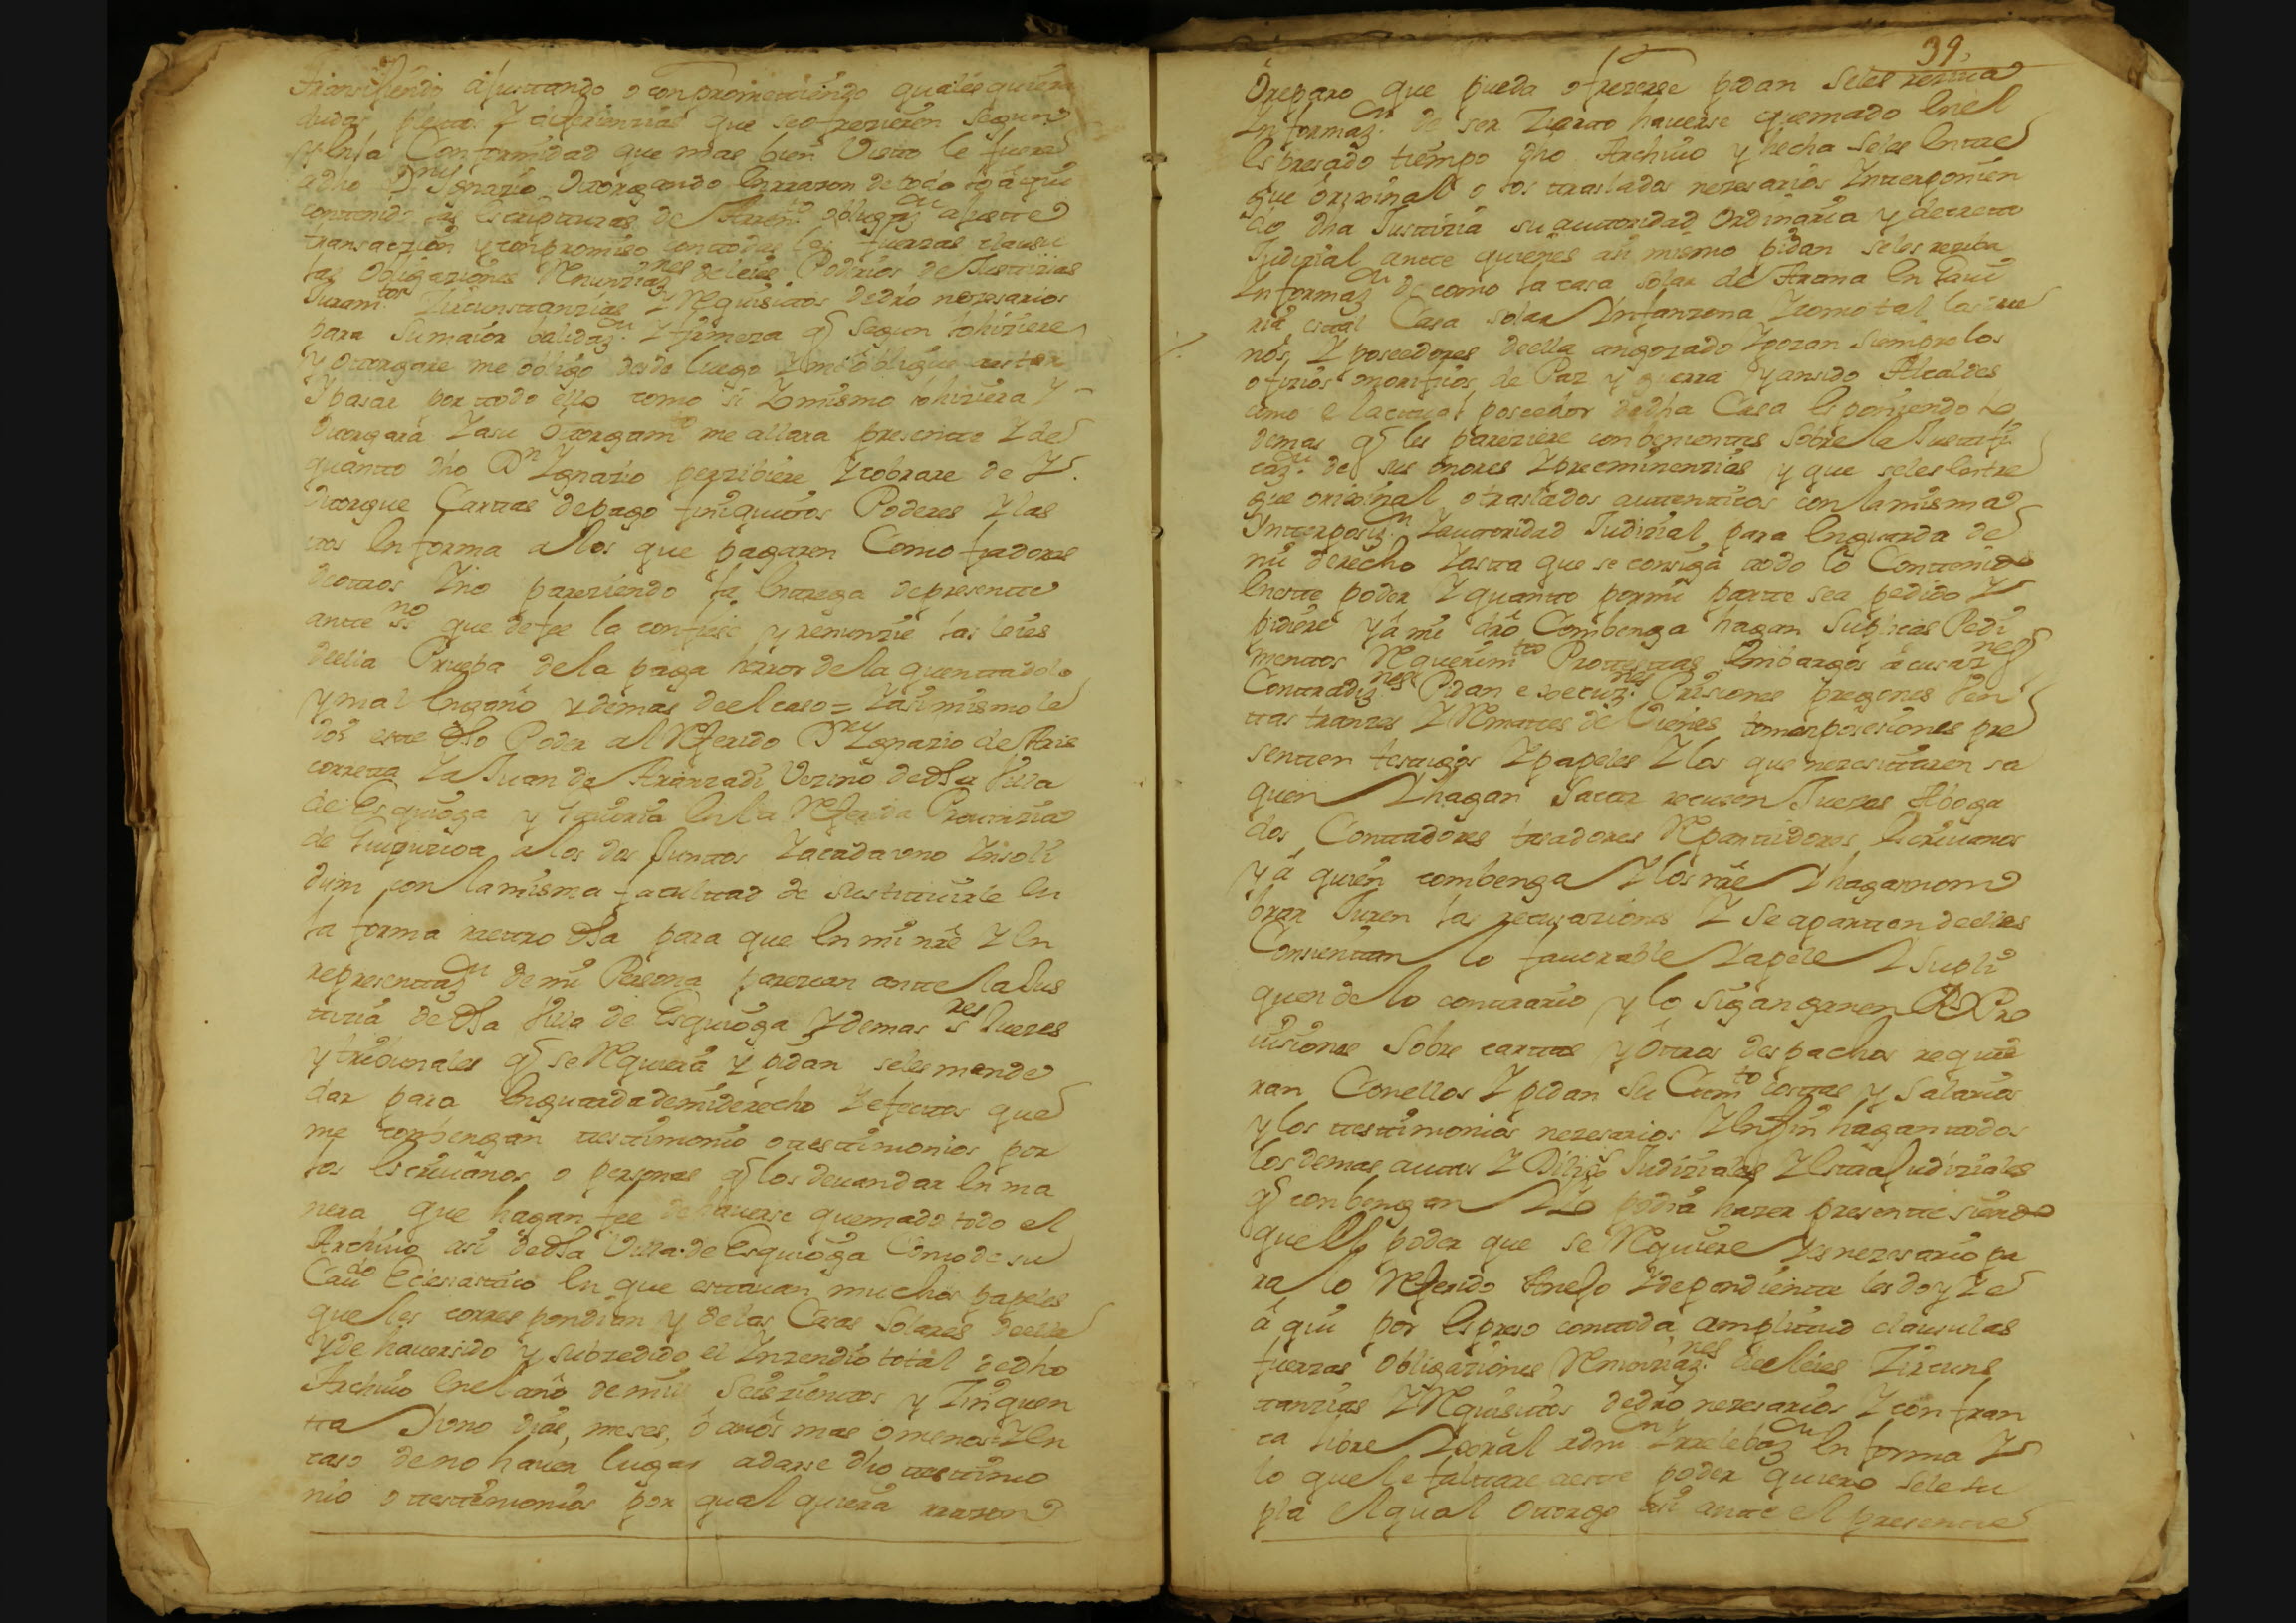 transijiendo ajustando o conprometiendo qualesquiera
dudas pleitos y diferienzias que se ofrezieren segun
y en la Conformidad que mas bien Visto le fuere
a dho Dn Ygnazio Otorgando en rrazon de todo lo aqui
contenido las escripturas de obligazn ajuste
transaczion y conpromiso con todas las fuerzas clausu
las Obligaziones Renunziaznes de leies Podrios de Justizias
Juramtos Zircunstanzias y Requisitos de dro nezesarios
para su maior balidazn y firmeza q segun lo hiziere
y otorgare me obligo desde luego y me obligue a estar
y pasar por todo ello como si yo mismo lo hiziera y
otorgara y a su otorgamto me allara presente y de
quanto dho Dn Ygnazio perzibiere y cobrare de y
otorgue Cartas de pago finiquitos Poderes y las
tos en forma a los que pagaren Como fiadores
de otros y no pareziendo la entrega de presente
ante sno que de fee la confiese y renunzie las leies
de ella Prueba de la paga herror de la quenta dolo
y mal engaño y demas de el caso = y asi mismo le
doi este dho Poder al Referido Dn Ygnazio de Aris
correta y a Juan de Aranzadi Vezino de dha Villa
de Esquioga y Gauiria en la Referida Prouinzia
de Guipuzcoa a los dos Juntos y a cada uno ynsoli
dum con la misma facultad de sustituirle en
la forma rretro dha para que en mi nre y en
representazn de mi Persona parezcan ante la Jus
tizia de dha Villa de Esquioga y demas sres Juezes
y tribunales q se Requiera y pidan seles mande
dar para en guarda de mi derecho y efectos que
me conbengan testimonio o testimonios por
los escriuanos o personas q los deuan dar en ma
nera que hagan fee de hauerse quemado todo el
Archiuo asi de dha Villa de Esquioga Como de su
Caudo Eclesiastico en que estauan muchos papeles
que les correspondian y de las Casas Solares de ella
y de hauer sido y subzedido el Ynzendio total de dho
Archiuo en el año de mill Seiszientos y Zinquen
ta y uno dias, meses, o años mas o menos y en
caso de no hauer lugar a darse dho testimo
nio o testimonios por qual quiera rrazon
39,
O reparo que pueda ofrezerse pidan seles reziua
Informazn de ser Zierto hauerse quemado en el
espresado tiempo dho Archiuo y hecha seles entre
gue orixinal o los traslados nezesarios Ynterponien
do dha Justizia su autoridad Ordinaria y decreto
Judizial ante quienes asi mismo pidan seles reziba
Informazn de como la casa solar de Arana en Gaui
ria es tal Casa solar Infanzona y como tal los due
nos y poseedores de ella an gozado y gozan siempre los
ofizios onorifios de Paz y guerra y an sido Alcaldes
como el actual poseedor de dha Casa esponiendo lo
demas q les pareziere conbeniente sobre la Justifi
cazn de sus onores y preeminenzias y que seles entre
gue orixinal o traslados autenticos con la misma
Ynterposizn y autoridad Judizial para en guarda de
mi derecho y asta que se consiga todo lo Contenido
en este poder y quanto por mi parte sea pedido y
pidiere y a mi dro Combenga hagan Suplicas Pedi
mentos Requerimtos Protestas Embargos acusaznes
Contradiznes Pidan execuznes Prisiones pregones Ven
tas tranzes y Remates de Vienes tomen posesiones pre
senten testigos y papeles y los que nezesitaren sa
quen y hagan Sacar recusen Juezes Aboga
dos Contadores tasadores Repartidores escriuanos
y a quien combenga y los nre y hagan nom
brar Juren las recusaziones y se aparten de ellas
Consientan lo fauorable y apele y supli
quen de lo contrario y lo sigan ganen Rs Pro
uisiones sobre cartas y otros despachos requie
ran Con ellos y pidan su Cumto costas y salarios
y los testimonios nezesarios y en fin hagan todos
los demas autos y Dilixs Judiziales y estraJudiziales
q conbengan y yo podria hazer presente siendo
que el poder que se Requiere y es nezesario pa
ra lo Referido Anejo y dependiente les doy y e
aqui por espreso con toda amplitud clausulas
fuerzas obligaziones Renunziaznes de leies Zircuns
tanzias y Requisitos de dro nezesarios y con fran
ca libre y xeral admn y rreleuazn en forma y
lo que le faltare a este poder quiero sele su
pla el qual otorgo asi ante el presente